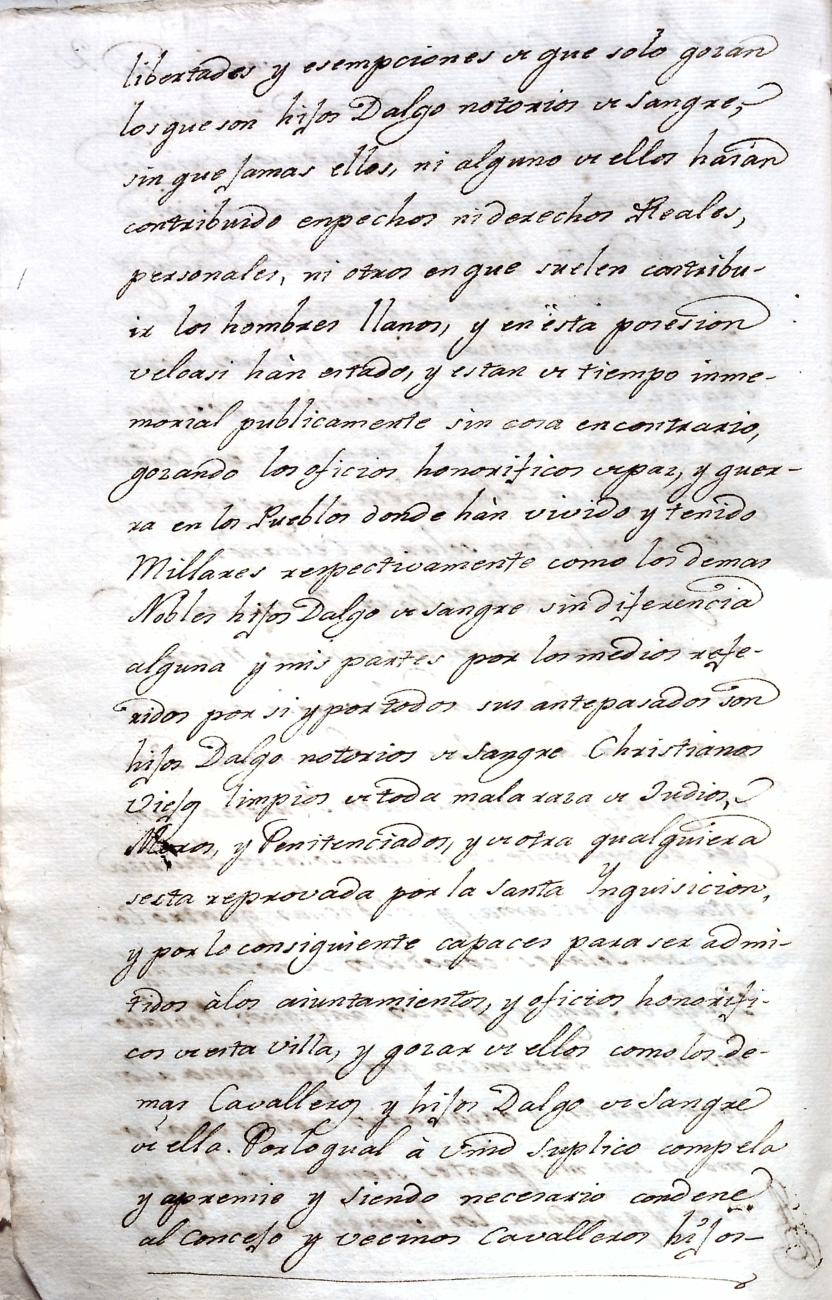 libertades y esempciones de que solo gozan
los que son hijos Dalgo notorios de sangre,
sin que jamas ellos, ni alguno de ellos haian
contribuido en pechos ni derechos Reales,
personales, ni otros en que suelen contribu-
ir los hombres llanos, y en esta posesion
velcasi hàn estado, y estan de tiempo inme-
morial publicamente sin cosa en contrario,
gozando los oficios honorificos de paz, y guer-
ra en los Pueblos donde hàn vivido y tenido
Millares respectivamente como los demas
Nobles hijos Dalgo de sangre sin diferencia
alguna y mis partes por los medios refe-
ridos por si y por todos sus antepasados son
hijos Dalgo notorios de sangre Christianos
Viejos limpios de toda mala raza de Judios,
Moros, y Penitenciados, y de otra qualquiera
secta reprovada por la Santa Ynquisicion,
y por lo consiguiente capaces para ser admi-
tidos à los aiuntamientos, y oficios honorifi-
cos de esta Villa, y gozar de ellos como los de-
mas Cavalleros y hijos Dalgo de Sangre
de ella. Por lo qual à Vmd suplico compela
y apremie y siendo necesario condene
al Concejo y vecinos Cavalleros hijos-